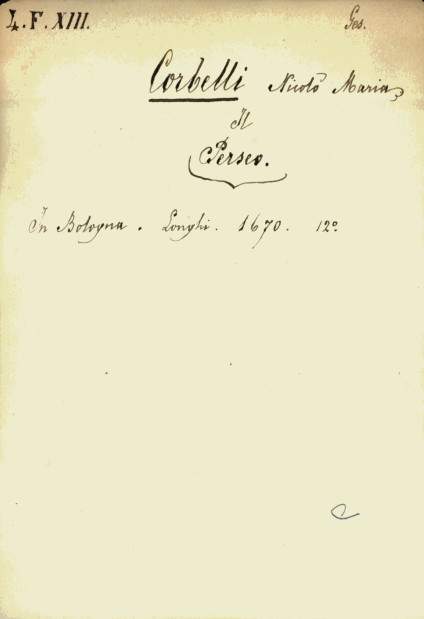 4.F.XIII. Ges.
Corbelli Nicolò Maria,
Il
Perseo.
In Bologna. Longhi. 1670. 12º